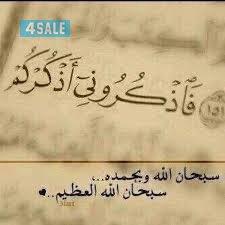 4SALE
فَاذْكُرُونِي أَذْكُرْكُمْ
١٥١
سبحان الله وبحمده..،
سبحان الله العظيم..